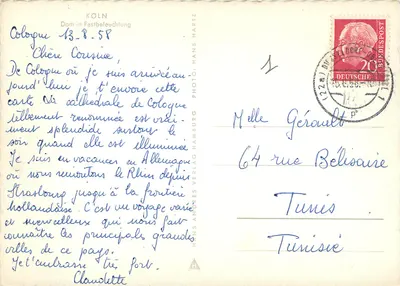 KÖLN
Dom in Festbeleuchtung
Cologne 13.8.58
Chère Cousine,
De Cologne où je suis arrivée au
jourd'hui je t'envoie cette
carte. La cathédrale de Cologne
tellement renommée est vrai-
ment splendide surtout le
soir quand elle est illuminée.
Je suis en vacances en Allemagne
où nous remontons le Rhin depuis
Strasbourg jusqu'à la frontière
hollandaise. C'est un voyage varié
et merveilleux qui nous fait
connaître les principales grandes
villes de ce pays.
Je t'embrasse très fort.
Claudette
1
DEUTSCHE BUNDESPOST
20
Melle Gérault
64 rue Bélisaire
Tunis
Tunisie